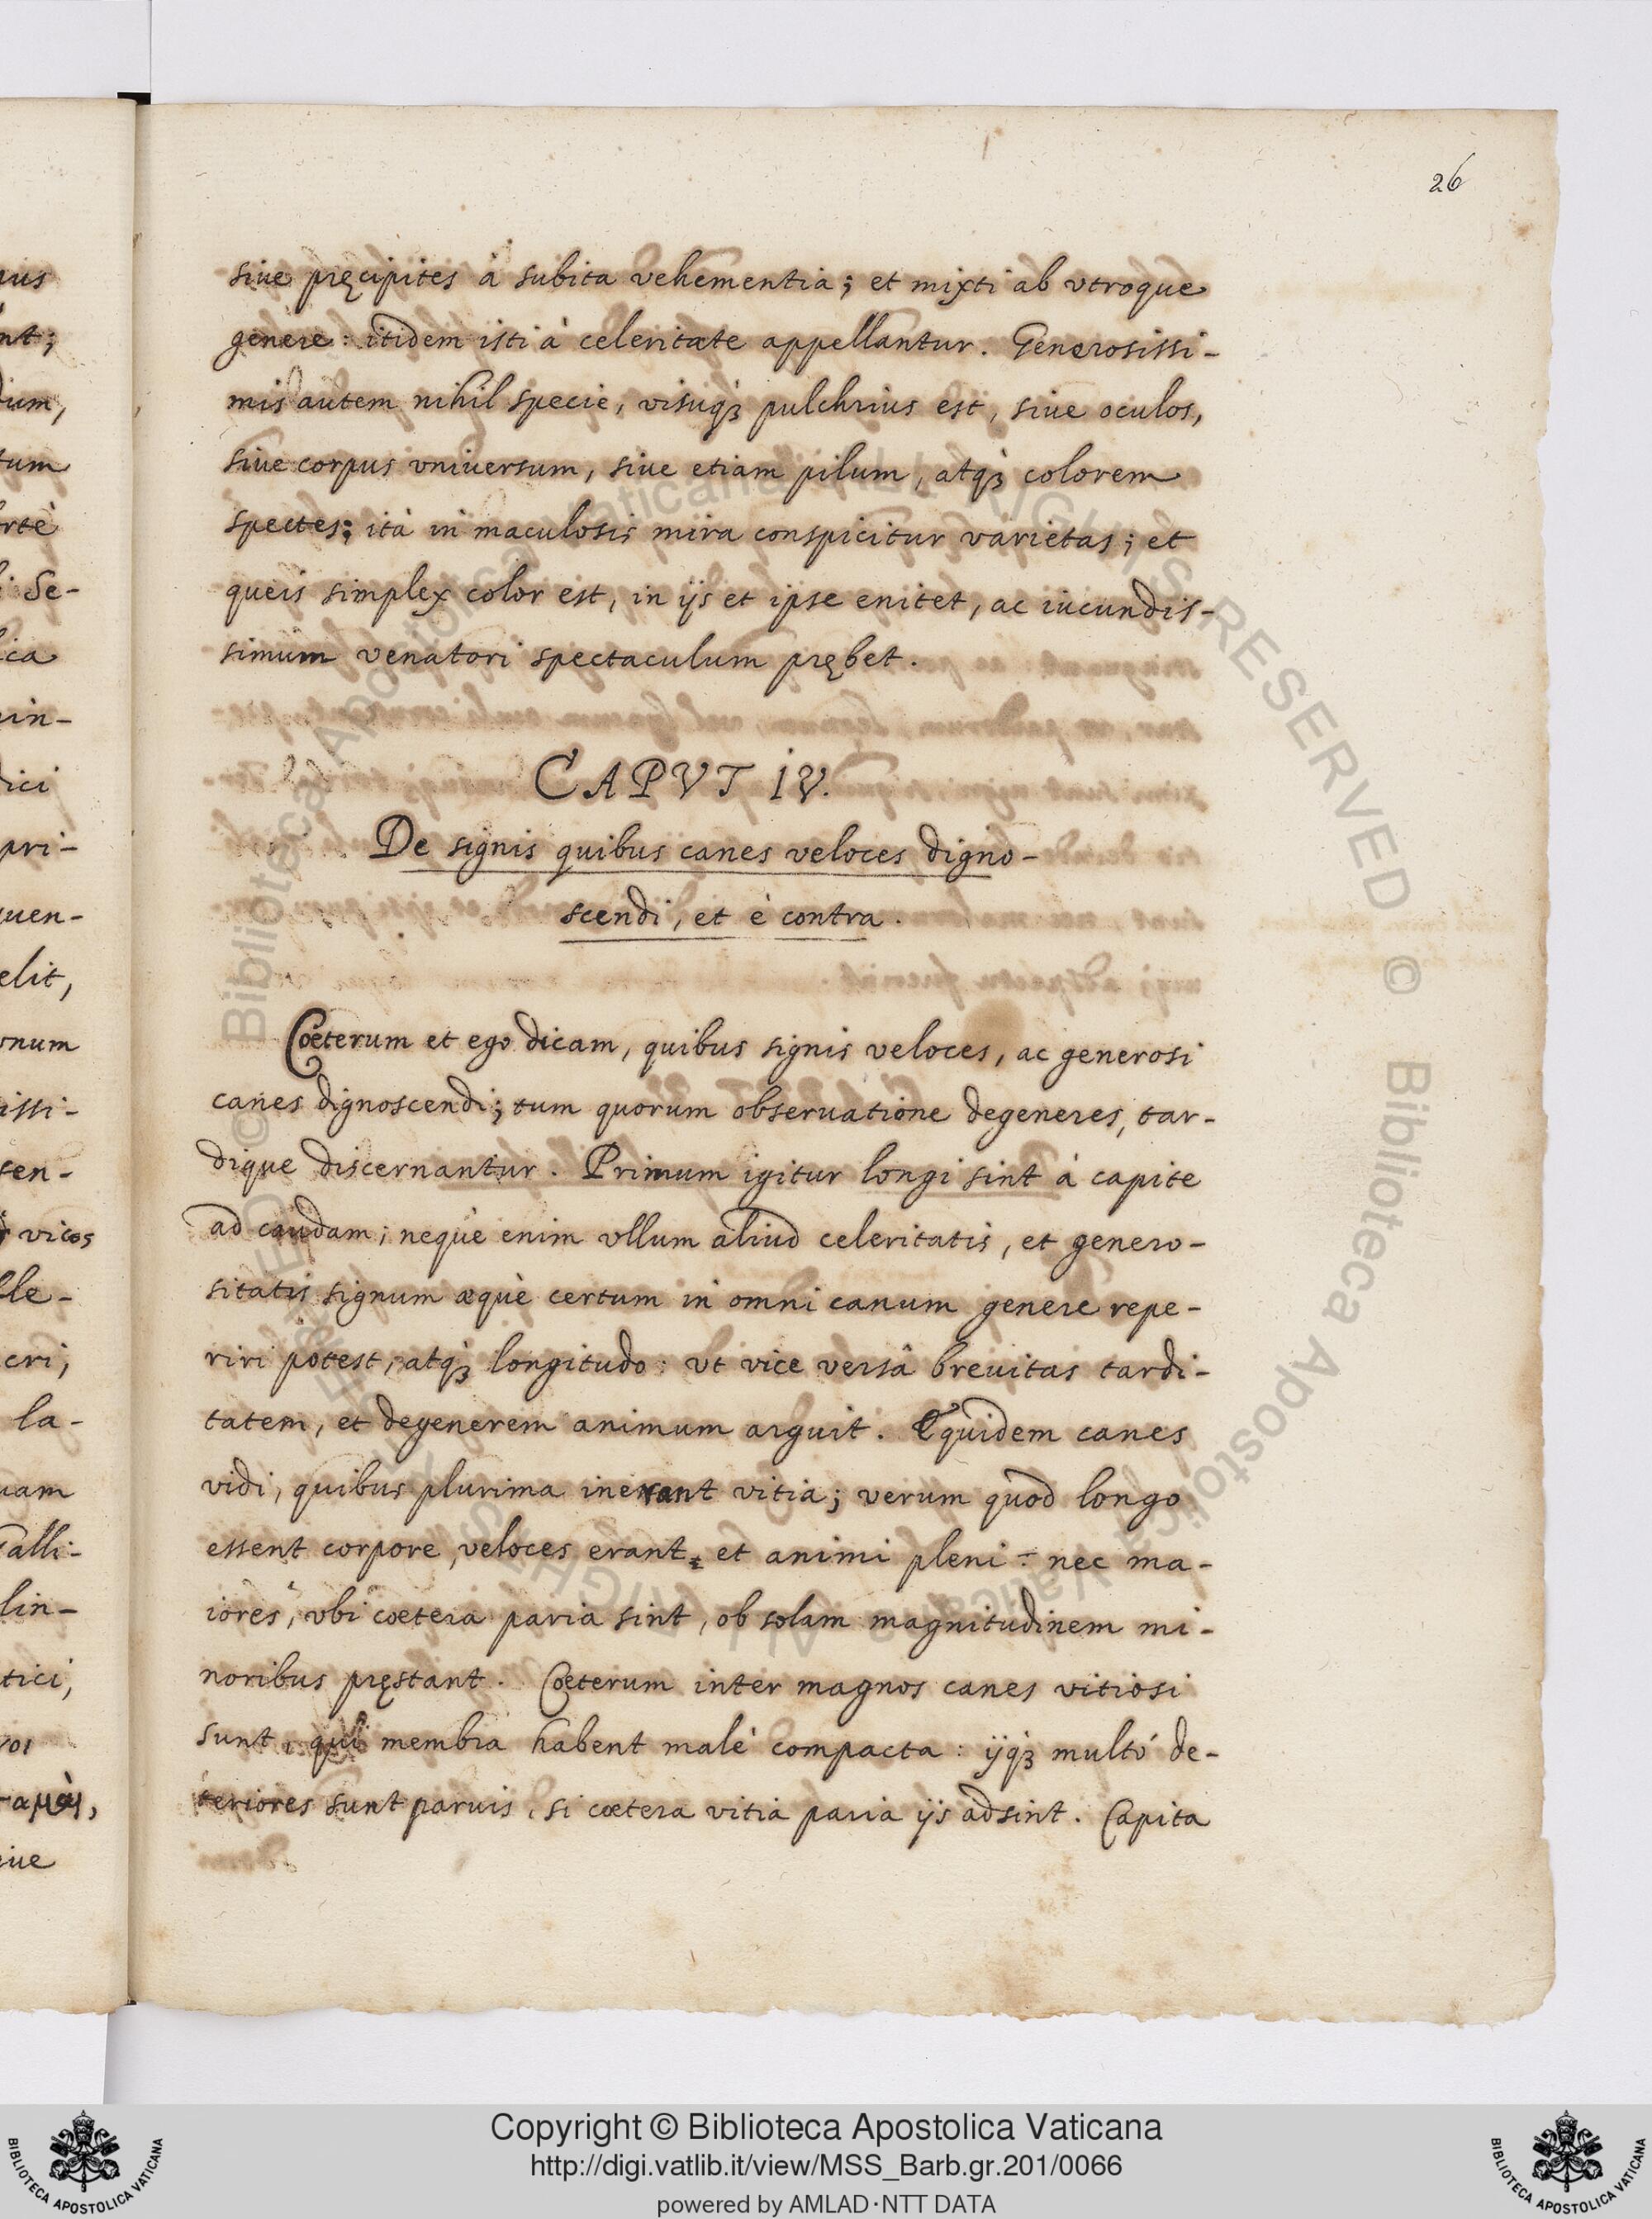 26
siue pręcipites à subita vehementia; et mixti ab vtroque
genere: itidem isti à celeritate appellantur. Generosissi-
mis autem nihil specie, visuqꝫ pulchrius est, siue oculos,
siue corpus vniuersum, siue etiam pilum, atqꝫ colorem
spectes; ità in maculosis mira conspicitur varietas; et
queis simplex color est, in ijs et ipse enitet, ac iucundis-
simum venatori spectaculum prębet.
CAPVT IV.
De signis quibus canes veloces digno-
scendi, et è contra.
Cœterum et ego dicam, quibus signis veloces, ac generosi
canes dignoscendi; tum quorum obseruatione degeneres, tar-
dique discernantur. Primum igitur longi sint à capite
ad caudam; neque enim vllum aliud celeritatis, et genero-
sitatis signum æquè certum in omni canum genere repe-
riri potest, atqꝫ longitudo: vt vice versâ breuitas tardi-
tatem, et degenerem animum arguit. Equidem canes
vidi, quibus plurima inerant vitia; verum quod longo
essent corpore, veloces erant, et animi pleni: nec ma-
iores, vbi cœtera paria sint, ob solam magnitudinem mi-
noribus pręstant. Cœterum inter magnos canes vitiosi
sunt, qui membra habent malè compacta: ijqꝫ multò de-
teriores sunt paruis, si cœtera vitia paria ijs adsint. Capita
nt;
dum,
tum
rtè
Se-
ica
in-
dici
pri-
quen-
elit,
rnum
issi-
sen-
vicos
lle-
cri,
la-
uam
Galli-
lin-
tici,
ραμαι,
siue
© Biblioteca Apostolica Vaticana ALL RIGHTS RESERVED © Biblioteca Apostolica Vaticana ALL RIGHTS RESERVED
Copyright © Biblioteca Apostolica Vaticana
http://digi.vatlib.it/view/MSS_Barb.gr.201/0066
powered by AMLAD·NTT DATA
BIBLIOTECA APOSTOLICA VATICANA
BIBLIOTECA APOSTOLICA VATICANA